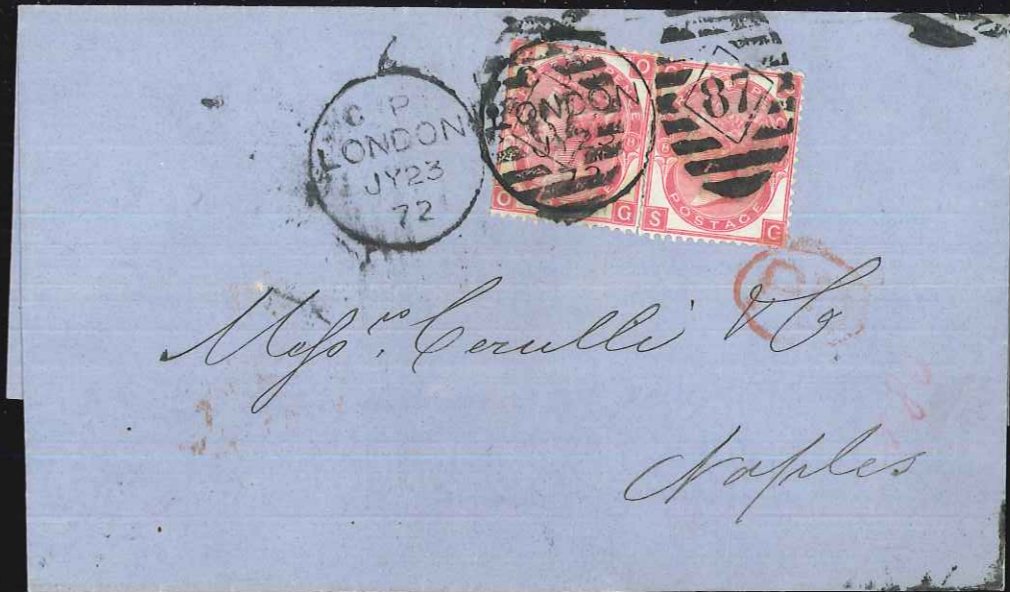 C P
LONDON
JY23
72
LONDON
JY23
72
87
O G
POSTAGE
S G
Messrs. Cerulli & Co
Naples